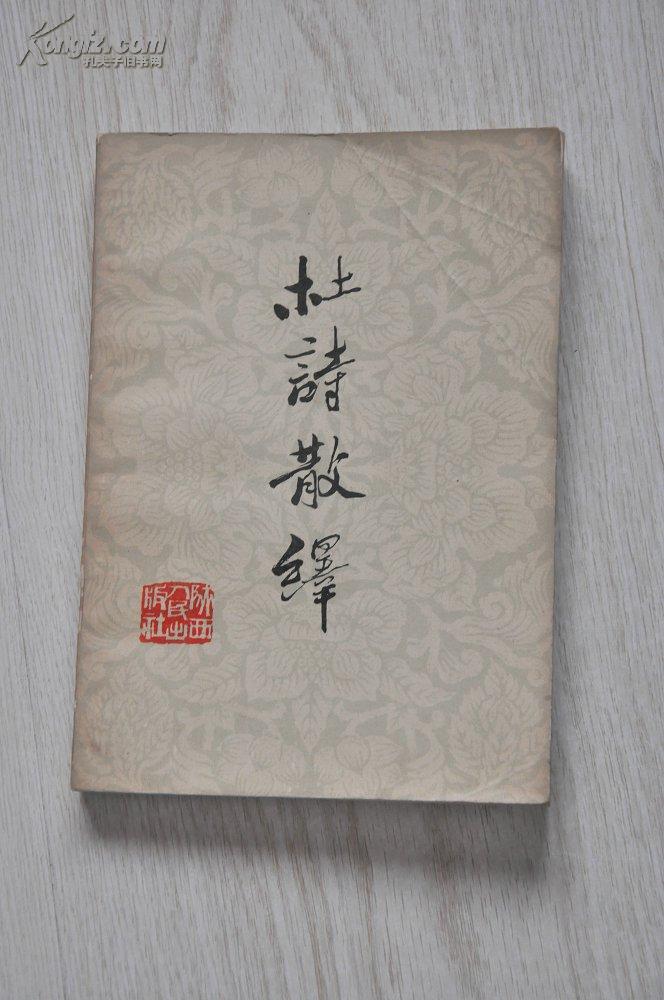 Kongfz.com
孔夫子旧书网
杜詩散繹
陕西
人民出
版社